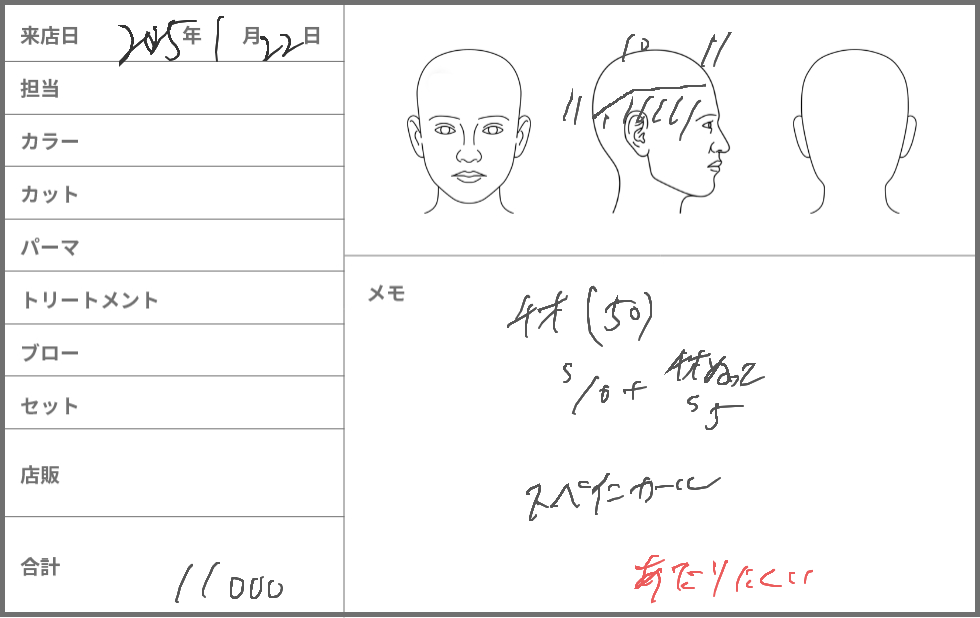 来店日 2025年1月22日
担当
カラー
カット
パーマ
トリートメント
ブロー
セット
店販
合計 11000
10 11
11
メモ
(50)
S 10+
S 5
スペインカール
あたりにくい